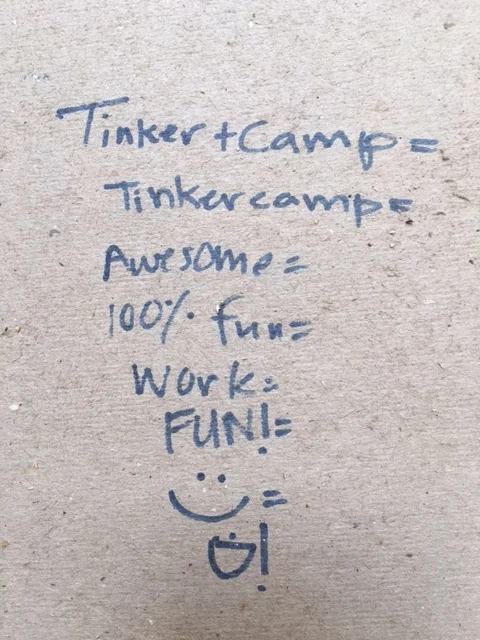 Tinker+Camp=
Tinkercamp=
Awesome=
100% fun=
Work=
FUN!=
=
!